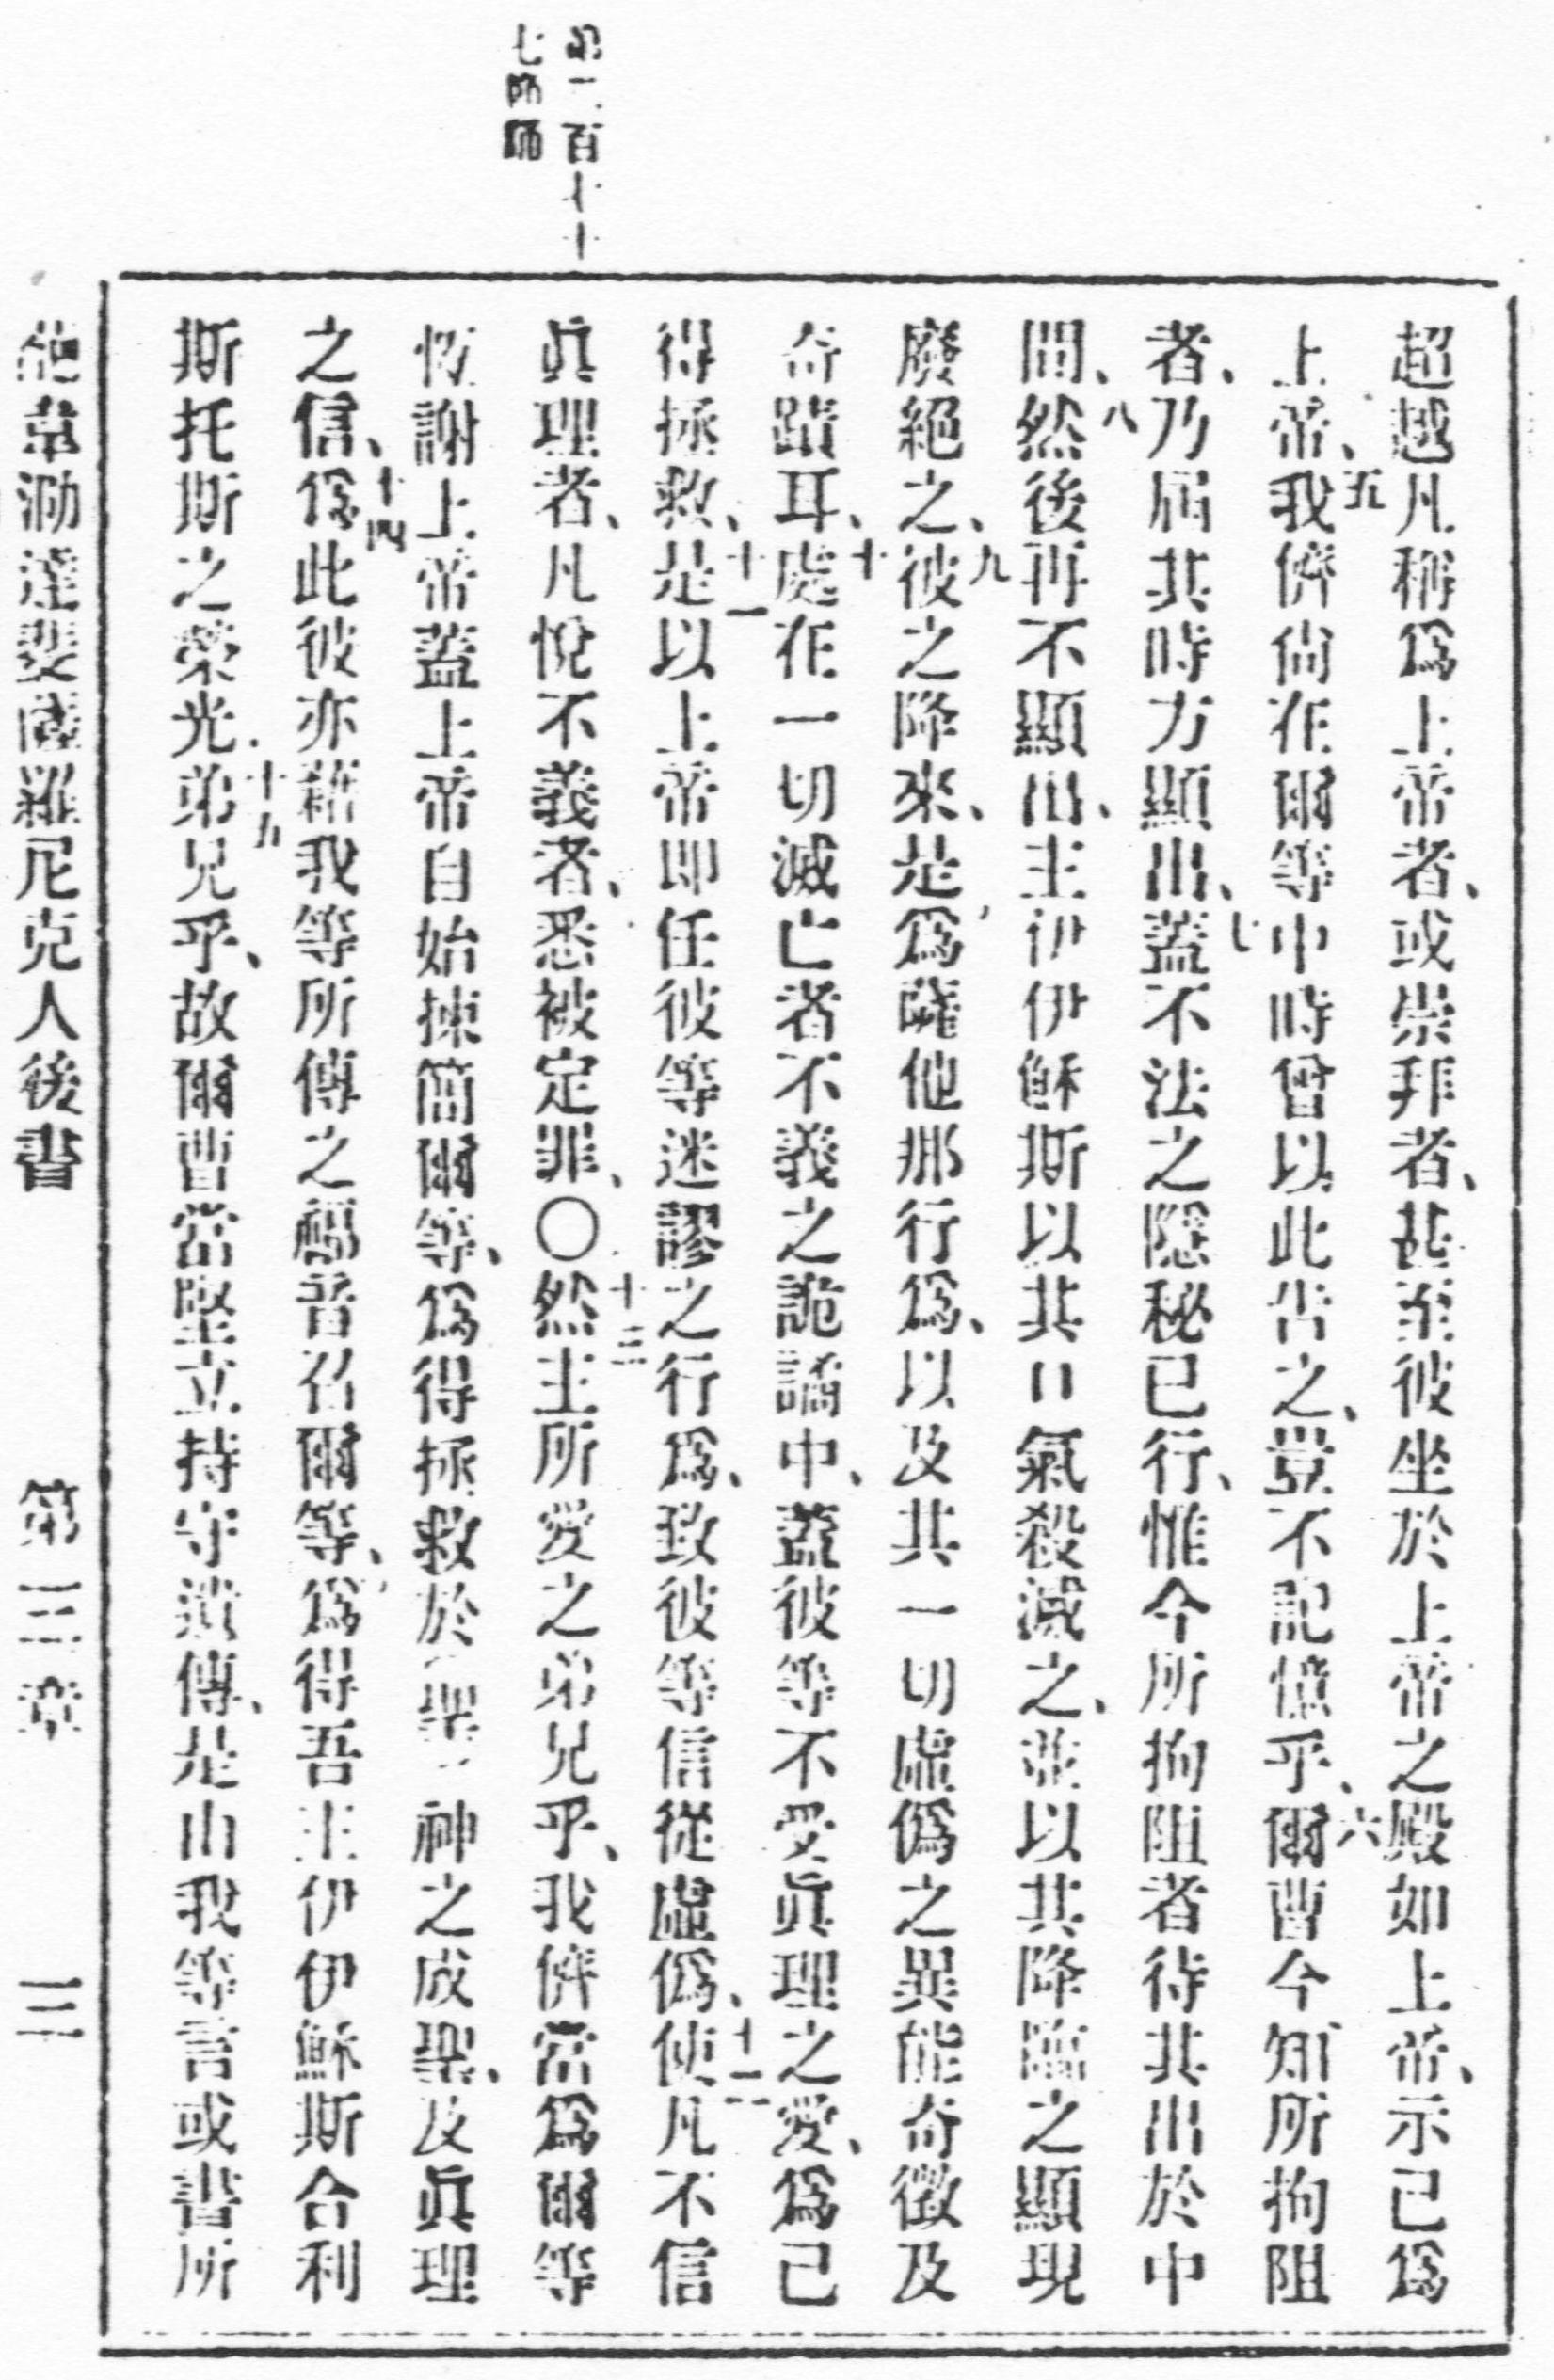 第二百七十
七節
超越凡稱爲上帝者、或崇拜者、甚至彼坐於上帝之殿如上帝、示己爲
上帝、五我儕尙在爾等中時曾以此告之、豈不記憶乎、六爾曹今知所拘阻
者、乃屆其時方顯出、七蓋不法之隱秘已行、惟今所拘阻者待其出於中
間、八然後再不顯出、主伊伊穌斯以其口氣殺滅之、並以其降臨之顯現
廢絕之、九彼之降來、是爲薩他那行爲、以及其一切虛僞之異能奇徵及
奇蹟耳、十處在一切滅亡者不義之詭譎中、蓋彼等不受眞理之愛、爲己
得拯救、十一是以上帝即任彼等迷謬之行爲、致彼等信從虛僞、十二使凡不信
眞理者、凡悅不義者、悉被定罪、〇十三然主所愛之弟兄乎、我儕當爲爾等
恆謝上帝蓋上帝自始揀簡爾等、爲得拯救於(聖)神之成聖、及眞理
之信、十四爲此彼亦藉我等所傳之福音召爾等、爲得吾主伊伊穌斯合利
斯托斯之榮光、十五弟兄乎、故爾曹當堅立持守遺傳、是由我等言或書所
葩韋泐達斐薩羅尼克人後書 第二章 三